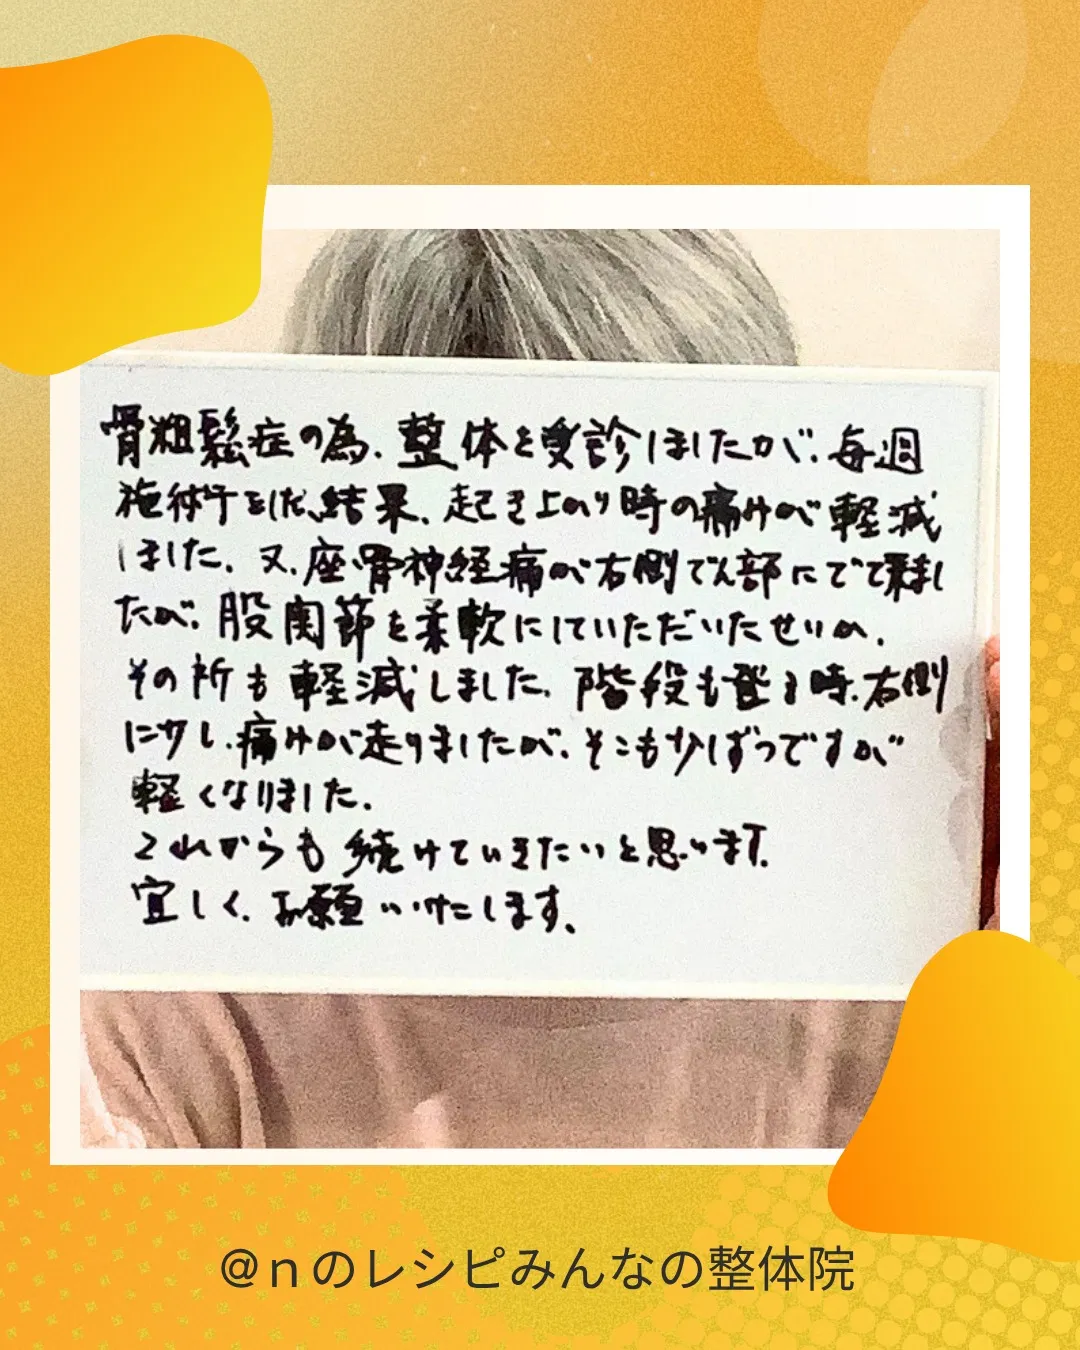 骨粗鬆症の為、整体を受診しましたが、毎週
施術をした結果、起き上がり時の痛みが軽減
しました。又、座骨神経痛が右側でん部にでて来まし
たが、股関節を柔軟にしていただいたせいか、
その所も軽減しました。階段も登る時、右側
に少し、痛みが走りましたが、そこも少しずつですが
軽くなりました。
これからも続けていきたいと思います。
宜しく、お願いいたします。
@nのレシピみんなの整体院